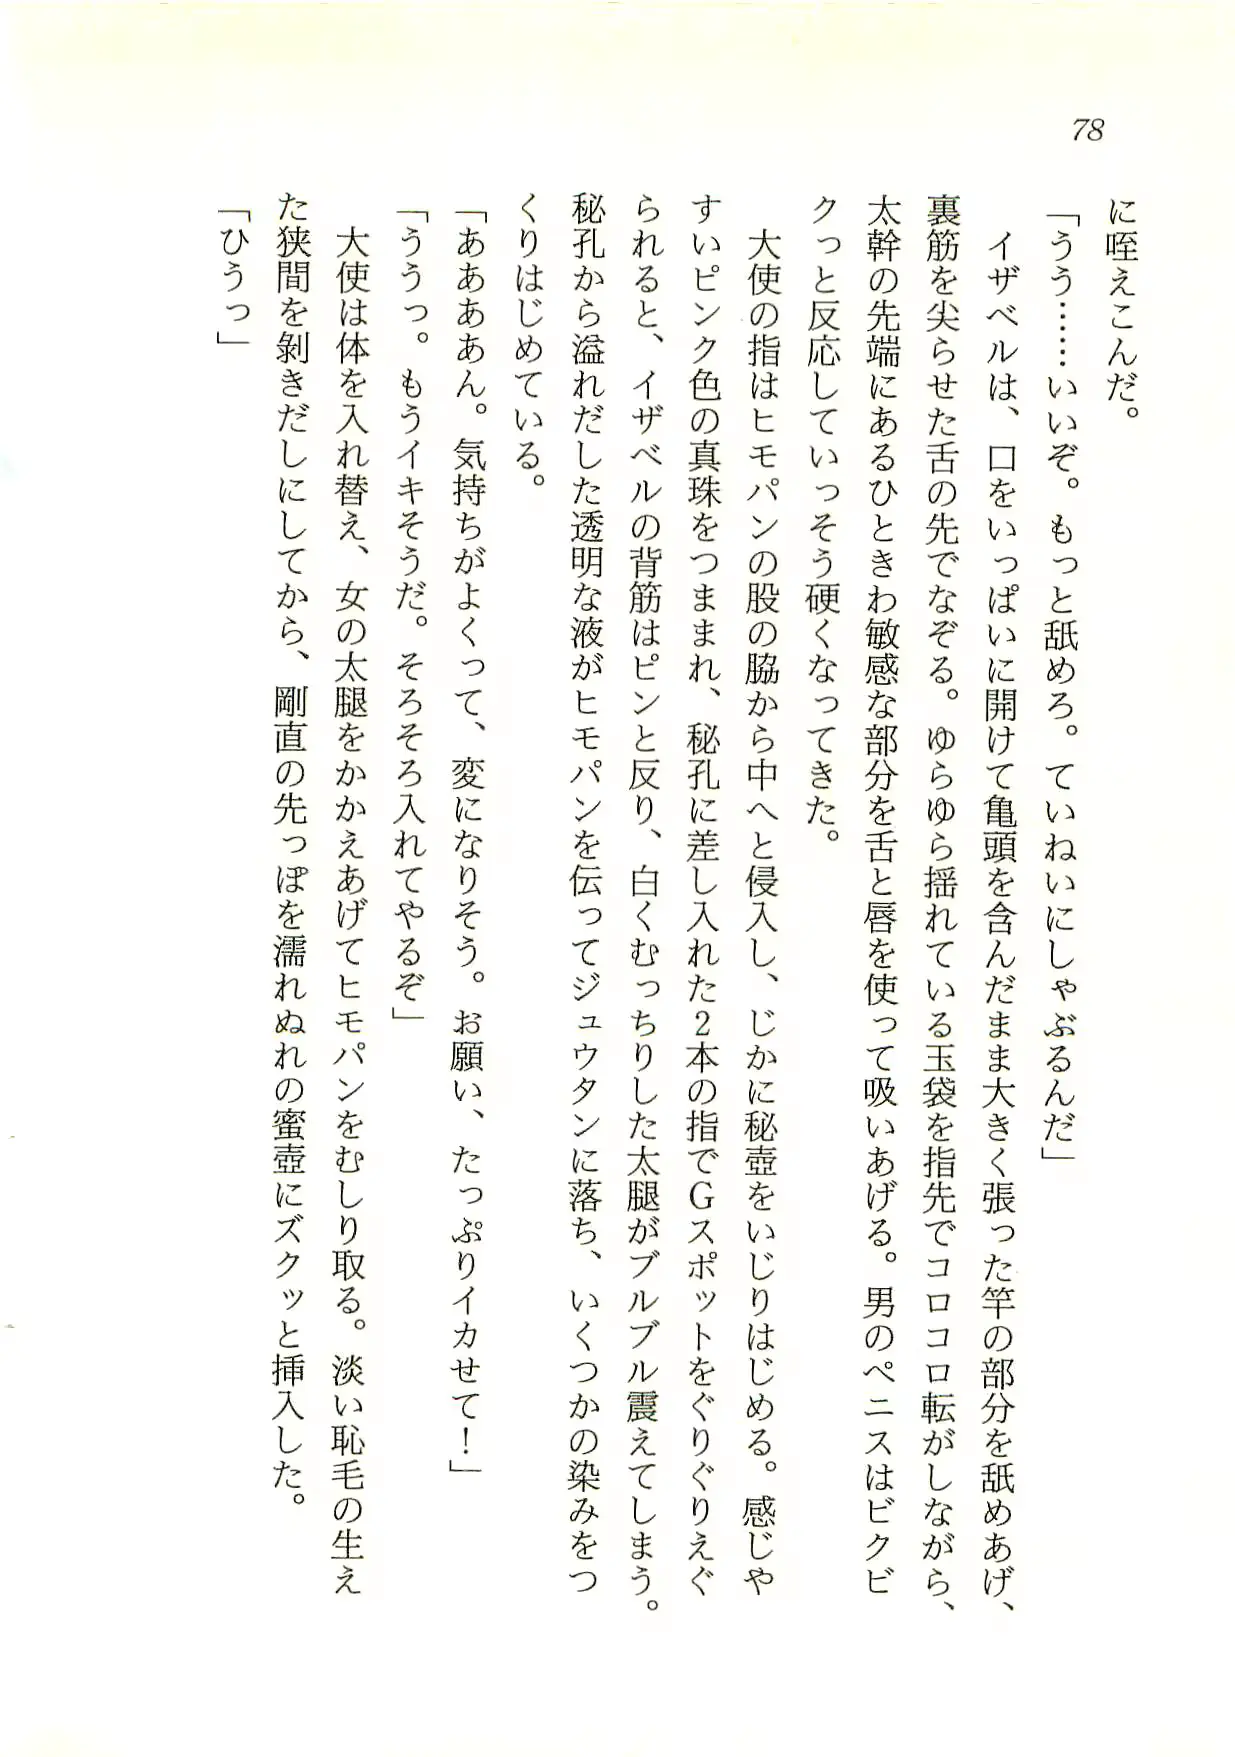 78
に咥えこんだ。
「うう……いいぞ。もっと舐めろ。ていねいにしゃぶるんだ」
　イザベルは、口をいっぱいに開けて亀頭を含んだまま大きく張った竿の部分を舐めあげ、
裏筋を尖らせた舌の先でなぞる。ゆらゆら揺れている玉袋を指先でコロコロ転がしながら、
太幹の先端にあるひときわ敏感な部分を舌と唇を使って吸いあげる。男のペニスはビクビ
クっと反応していっそう硬くなってきた。
　大使の指はヒモパンの股の脇から中へと侵入し、じかに秘壺をいじりはじめる。感じや
すいピンク色の真珠をつままれ、秘孔に差し入れた２本の指でＧスポットをぐりぐりえぐ
られると、イザベルの背筋はピンと反り、白くむっちりした太腿がブルブル震えてしまう。
秘孔から溢れだした透明な液がヒモパンを伝ってジュウタンに落ち、いくつかの染みをつ
くりはじめている。
「ああああん。気持ちがよくって、変になりそう。お願い、たっぷりイカせて！」
「ううっ。もうイキそうだ。そろそろ入れてやるぞ」
　大使は体を入れ替え、女の太腿をかかえあげてヒモパンをむしり取る。淡い恥毛の生え
た狭間を剝きだしにしてから、剛直の先っぽを濡れぬれの蜜壺にズクッと挿入した。
「ひうっ」